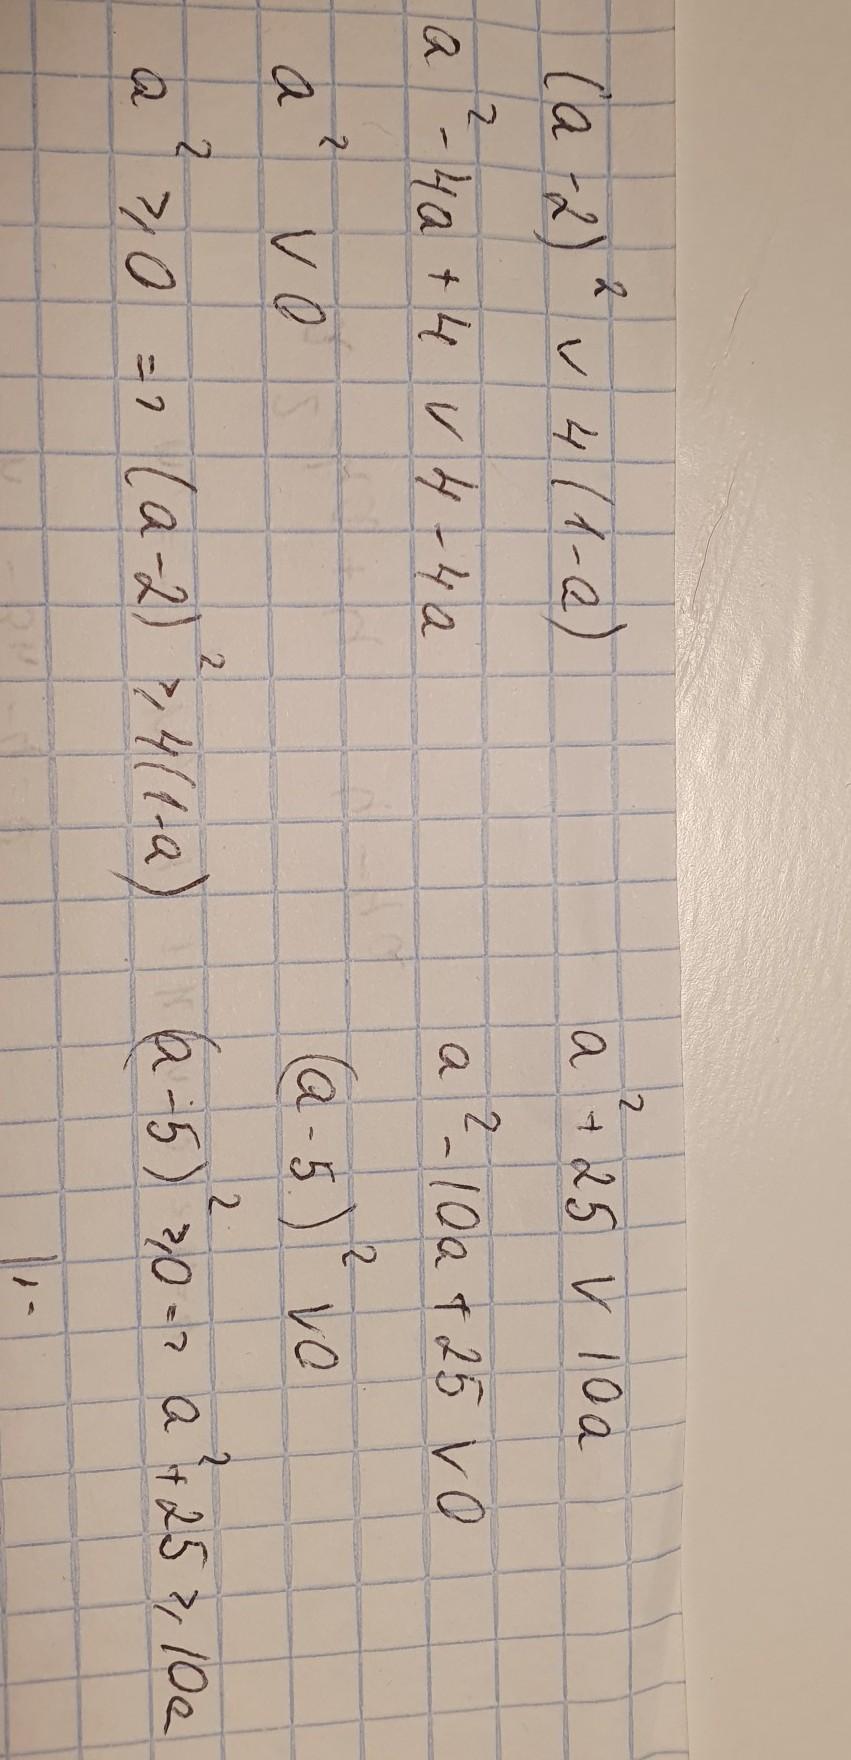 (a-2)² ∨ 4(1-a)
a²-4a+4 ∨ 4-4a
a² ∨ 0
a² ⩾ 0 => (a-2)² ⩾ 4(1-a)
a²+25 ∨ 10a
a²-10a+25 ∨ 0
(a-5)² ∨ 0
(a-5)² ⩾ 0 => a²+25 ⩾ 10a